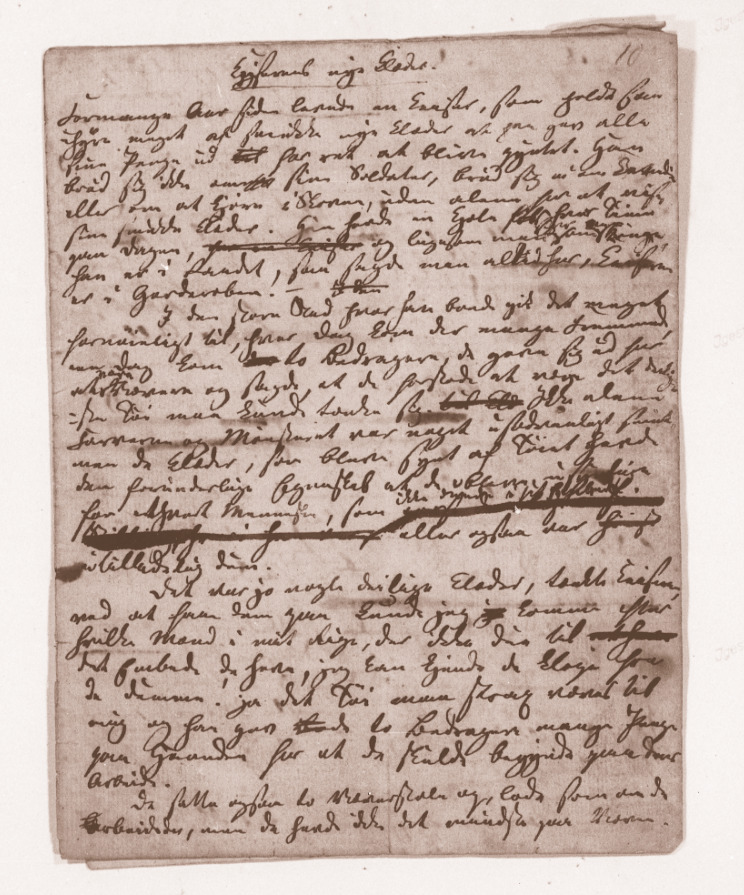 10
Keiserens nye Klæder.
For mange Aar siden levede en Keiser, som holdt saa
uhyre meget af smukke nye Klæder at han gav alle
sine Penge ud for ret at blive pyntet. Han
brød sig ikke om sine Soldater, brød sig ei om Comedie
eller om at kjøre i Skoven, uden alene for at vise
sine smukke Klæder. Han havde en Kjole for hver Time
paa Dagen, og ligesom man siger
han er i Raadet, saa sagde man altid her, Keiseren
er i Garderoben. –
I den store Stad hvor han boede gik det meget
fornøieligt til, hver Dag kom der mange Fremmede
en Dag kom to Bedragere, de gave sig ud for
at Vævere og sagde, at de forstode at væve det deilig
-ste Tøi man kunde tænke sig Ikke alene
Farverne og Mønsteret var noget usædvanligt smukt
men de Klæder, som bleve syet af Tøiet havde
den forunderlige Egenskab at de bleve usynlige
for ethvert Menneske, som ikke duede i sit Embede.
eller ogsaa var
utilladelig dum.
Det var jo nogle deilige Klæder, tænkte Keiseren,
ved at have dem paa kunde jeg komme efter
hvilke Mænd i mit Rige, der ikke due til
det Embede de have, jeg kan kjende de kloge fra
de dumme! ja det Tøi maa strax væves til
mig og han gav de to Bedragere mange Penge
paa Haanden for at de skulde begynde paa deres
Arbeide.
De satte ogsaa to Vævestole op, lode som om de
arbeidede, men de havde ikke det mindste paa Væven.